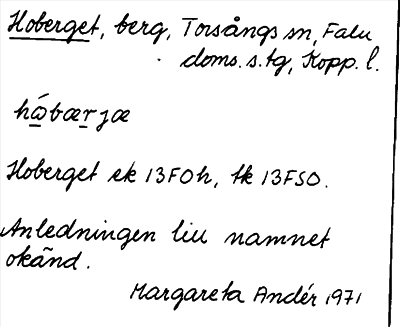 Hoberget, berg, Torsångs sn, Falu
doms.s.tg, Kopp. l.
hó̲bær̲jæ
Hoberget ek 13F0h, tk 13FSO.
Anledningen till namnet
okänd.
Margareta Andér 1971